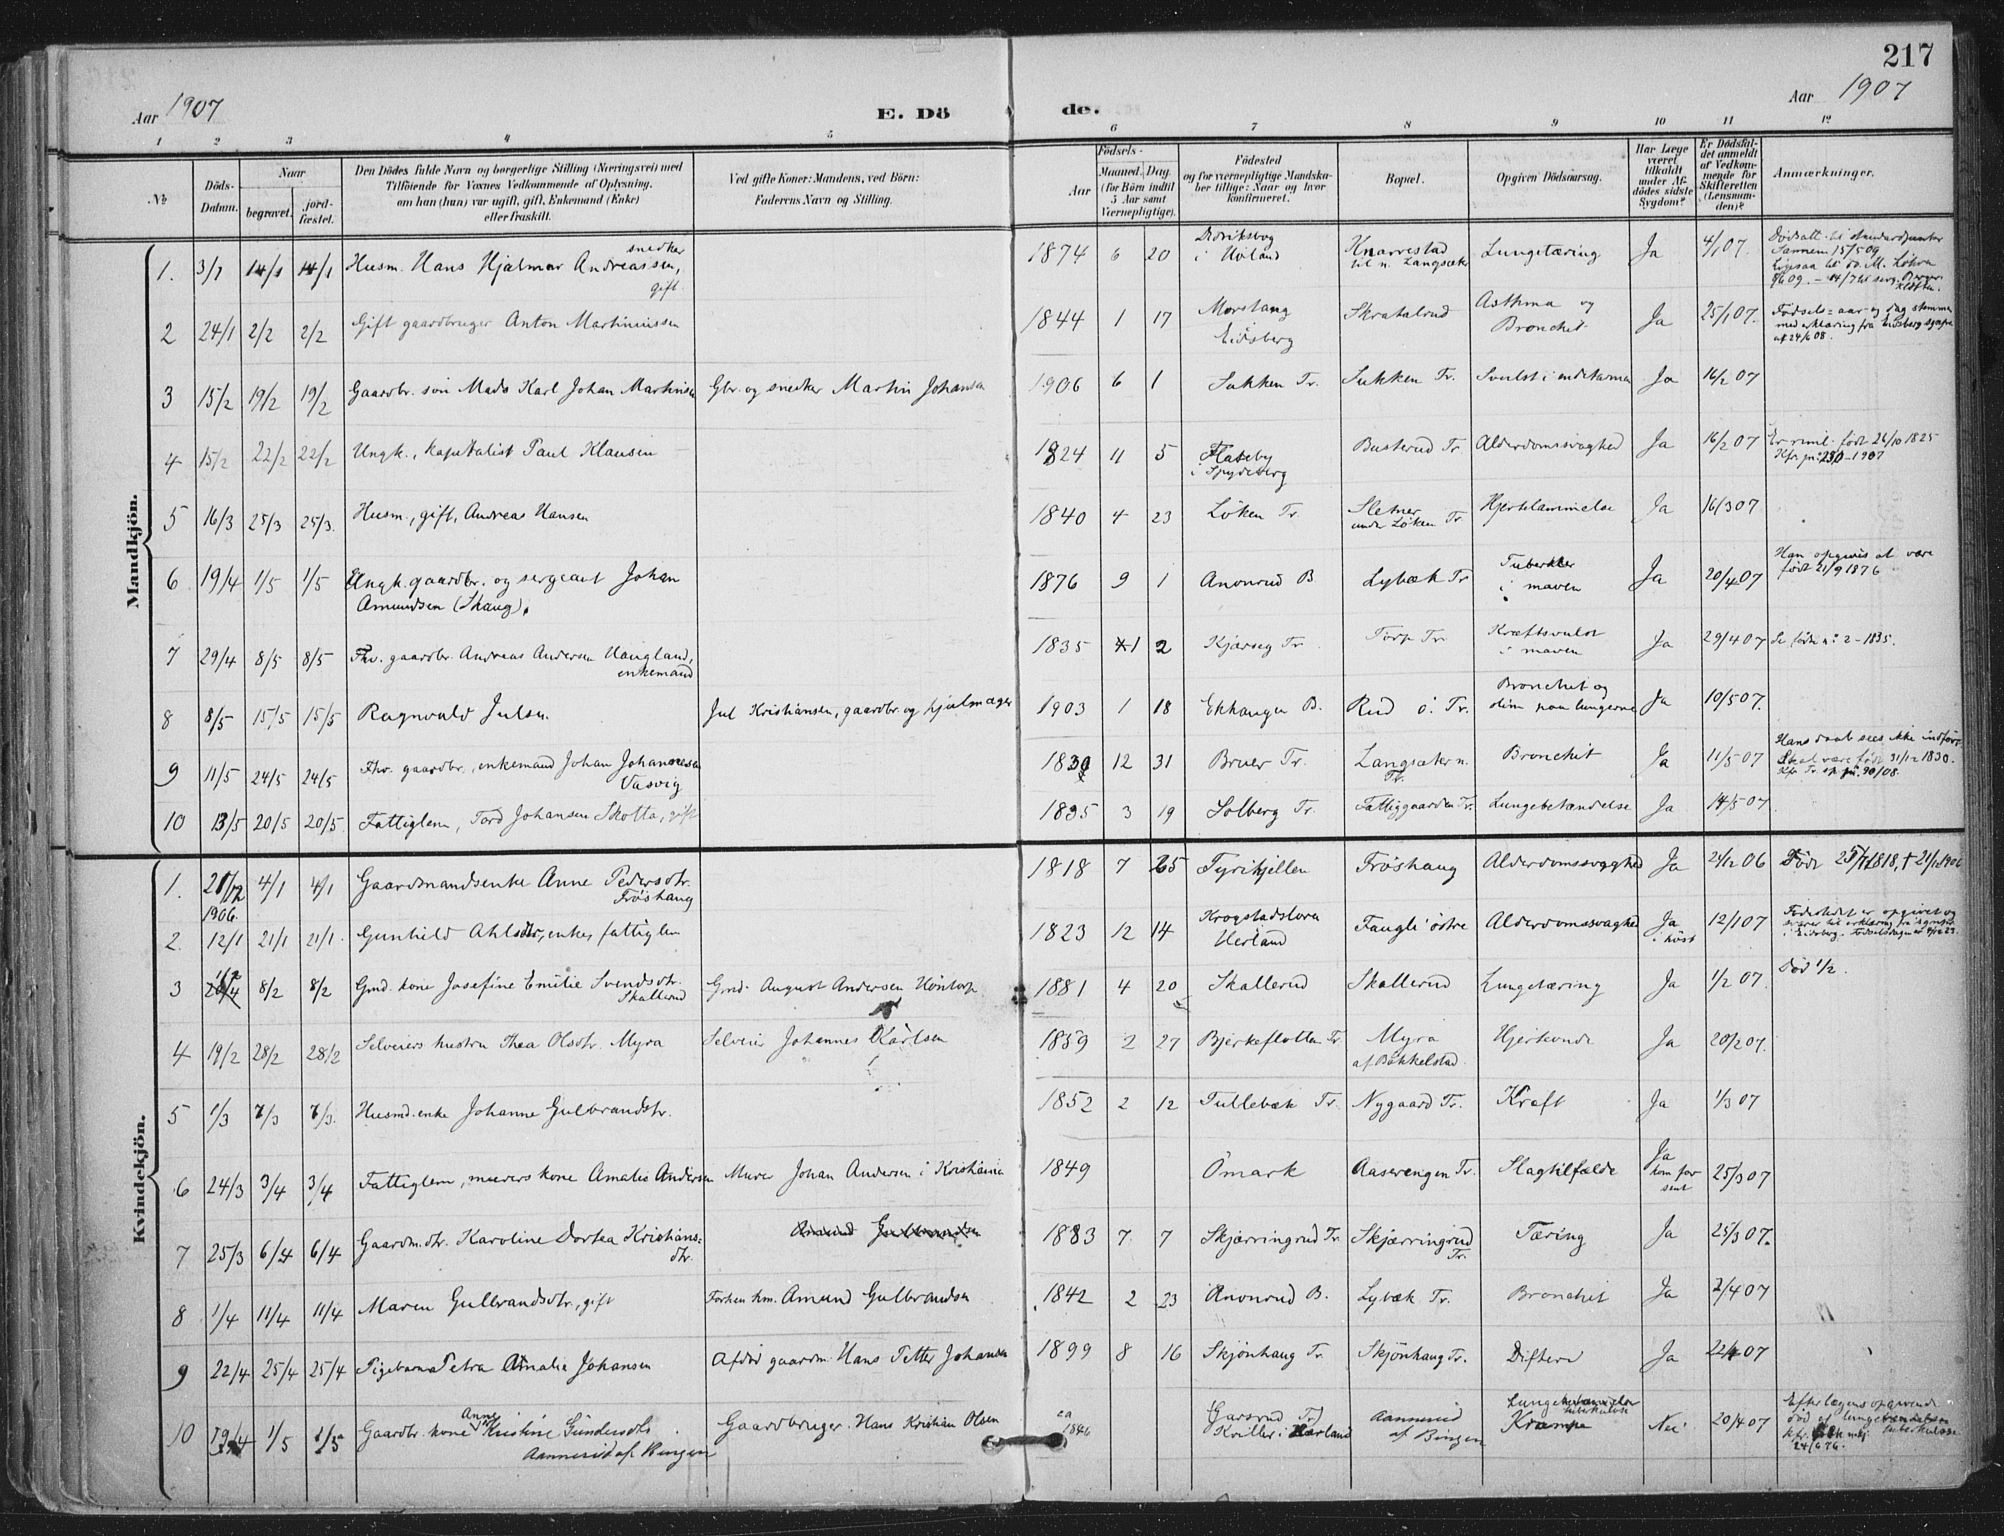 217
Aar 1907
E. Dö
de.
Aar 1907
1 2 3 4 5 6 7 8 9 10 11 12
№
Döds-Datum.
Naar
begravet. jordfæstet.
Den Dödes fulde Navn og borgerlige Stilling (Næringsvei) med
Tilföiende for Voxnes Vedkommende af Oplysning,
om han (hun) var ugift, gift, Enkemand (Enke)
eller fraskilt.
Ved gifte Koner: Mandens, ved Börn:
Faderens Navn og Stilling.
Födsels-
Aar Maaned. Dag.
(for Börn indtil
5 Aar samt
Værnepligtige).
Födested
og for værnepligtige Mandskaber tillige: Naar og hvor
konfirmeret.
Bopæl.
Opgiven Dödsaarsag.
Har Læge
været
tilkaldt
under Afdödes sidste
Sygdom?
Er Dödsfaldet anmeldt
af Vedkommende for
Skifteretten
(Lensmanden)?
Anmærkninger.
Mandkjön.
1. 3/1 14/1 14/1 Husm. Hans Hjalmar Andreassen, snedker gift 1874 6 20 i Høland Knarrestad til n. Langsæter Lungetæring Ja 4/1 07.
2 24/1 2/2 2/2 Gift gaardbruger Anton Martiniussen 1844 1 17 Morstang Eidsberg Skratalrud Asthma og Bronchit Ja 25/1 07. Fødsels-aar og dag stemmer med erklæring fra Eidsberg sognepr. af 24/6 08.
3 15/2 19/2 19/2 Gaardbr. søn Mads Karl Johan Martinsen Gbr. og snedker Martin Johansen 1906 6 1 Sukken Tr. Sukken Tr. Svulst i endetarmen Ja 16/2 07
4 15/2 22/2 22/2 Ungk., kapitalist Paul Klausen 1824 11 5 Flateby i Spydeberg Busterud Tr Alderdomssvaghed Ja 16/2 07 Er riml. født 26/10 1825
5 16/3 25/3 25/3. Husm., gift, Andreas Hansen 1840 4 23 Løken Tr. Sletner under Løken Tr Hjertelammelse Ja 16/3 07
6 19/4 1/5 1/5 Ungk. gaardbr. og sergeant Johan Amundsen (Skaug). 1876 9 1 Anonrud B Lybæk Tr Tuberkler i maven Ja 20/4 07 Han opgives at være født 21/9 1876
7 29/4 8/5 8/5 Fhv. gaardbr. Andreas Andersen Haugland, enkemand 1835 1 2 Kjærseg Tr. Torp Tr. Kræftsvulst i maven Ja 29/4 07 Se fødte no 2 - 1835.
8 8/5 15/5 15/5 Ragnvald Julsen Jul Kristiansen, gaardbr. og hjulmager 1903 1 18 Ekhaugen B. Rud ö. Tr. Bronchit og slim paa lungerne Ja 10/5 07.
9 11/5 24/5 24/5 Fhv. gaardbr., enkemand Johan Johannesen Vasvig 1830 12 31 Bruer Tr. Langsæter n. Tr. Bronchit Ja 11/5 07 Hans daab sees ikke indført. Skal være født 31/12 1830. 90/08.
10 13/5 20/5 20/5 Fattiglem, Tord Johansen Skotta, gift 1835 3 19 Solberg Tr. Fattiggaarden Tr. Lungebetændelse Ja 14/5 07.
Kvindekjön.
1. 21/12 1906. 4/1 4/1 Gaardmandsenke Anne Pedersdtr. Frøshaug 1818 7 25 Tyrikjellen Frøshaug Alderdomssvaghed Ja 21/12 06 Født 25/7 1818, † 21/12 1906
2. 12/1 21/1 21/1. Gunhild Ahlsdtr, enke, fattiglem 1823 12 14 Krogstadsloren Herland Fangli østre Alderdomssvaghed Ja i høst 12/1 07 Fødestedet er opgivet og
3 1/2 8/2 8/2 Gmd. kone Josefine Emilie Svendsdtr. Skallerud Gmd. August Andersen Höntorp 1881 4 20 Skallerud Skallerud Lungetæring Ja 1/2 07. Død 1/2.
4 19/2 28/2 28/2 Selveiers hustru Thea Olsdtr. Myra Selveier Johannes Karlsen 1859 2 27 Bjerkeflotten Tr. Myra af Bakkelstad. Hjerteonde Ja 20/2 07.
5 1/3 7/3 7/3. Husmd. enke Johanne Gulbrandsdtr. 1852 2 12 Tullebæk Tr. Nygaard Tr. Kræft Ja 1/3 07
6 24/3 3/4 3/4 Fattiglem, murers kone Amalie Andersen Murer Johan Andersen i Kristiania 1849 Ömark Aaserengen Tr. Slagtilfælde Ja kom for sent 25/3 07
7 25/3 6/4 6/4 Gaardm. dtr. Karoline Dortea Kristiansdtr. Amund Gulbrandsen 1883 7 7 Skjærringrud Tr. Skjærringrud Tr. Tæring Ja 25/3 07.
8 1/4 11/4 11/4 Maren Gulbrandsdtr., gift Forhen hm. Amund Gulbrandsen 1842 2 23 Anonrud B. Lybæk Tr. Bronchit Ja 2/4 07
9 22/4 25/4 25/4 Pigebarn Petra Amalie Johansen Afdød gaardm. Hans Petter Johansen 1899 8 16 Skjönhaug Tr. Skjönhaug Tr. Difteri Ja 22/4 07
10 19/4 1/5 1/5 Gaardbr. kone Anne Kristine Gundersdtr. Aannerud af Bingen Gaardbruger Hans Kristian Olsen ca 1846 Garsrud Tr. Kviller i Hærland Aannerud af Bingen Lungetuberkulose Krampe Nei 20/4 07 Efter lægens opgivende død af lungetuberkulose 24/6 76.